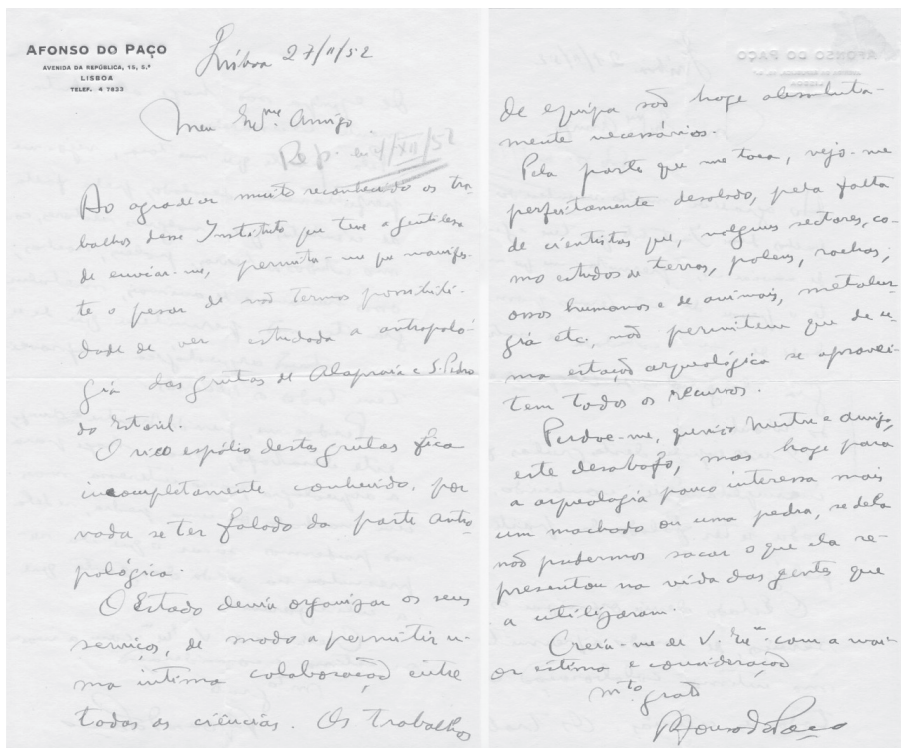 AFONSO DO PAÇO
AVENIDA DA REPÚBLICA, 15, 5.º
LISBOA
TELEF. 4 7833
Lisboa 27/11/52
Meu Exmo. Amigo
Rep. em 4/XII/52
Ao agradecer muito reconhecido os tra-
balhos desse Instituto que teve a gentileza
de enviar-me, permita-me que manifes-
te o pesar de não termos possibili-
dade de ver estudada a antropoló-
gia das grutas de Alapraia e S. Pedro
do Estoril.
O rico espólio destas grutas fica
incompletamente conhecido, por
nada se ter falado da parte antro-
pológica.
O Estado devia organizar os seus
serviços, de modo a permitir u-
ma íntima colaboração entre
todas as ciências. Os trabalhos
de equipa são hoje absoluta-
mente necessários.
Pela parte que me toca, vejo-me
perfeitamente desolado, pela falta
de cientistas que, nalguns sectores, co-
mo estudos de terras, polens, rochas,
ossos humanos e de animais, metalur-
gia etc, não permitem que de u-
ma estação arqueológica se aprovei-
tem todos os recursos.
Perdoe-me, querido Mestre e amigo,
este desabafo, mas hoje para
a arqueologia pouco interessa mais
um machado ou uma pedra, se dela
não pudermos sacar o que ela re-
presentou na vida das gentes que
a utilizaram.
Creia-me de V. Exa. com a mai-
or estima e consideração
mto grato
Afonso do Paço